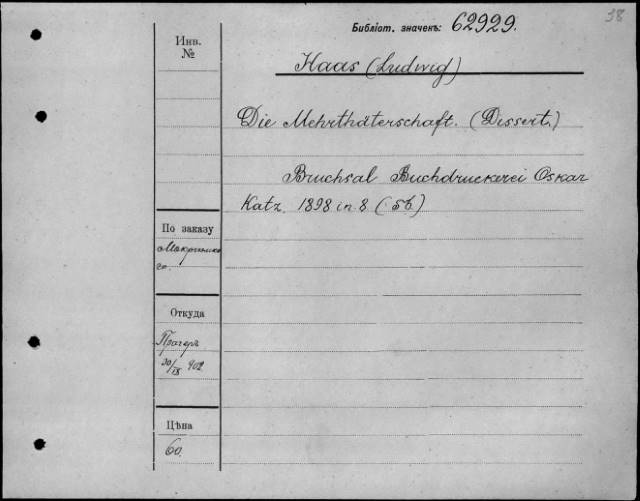 38
Библіот. значекъ: 62929.
Инв.
№
Haas (Ludwig)
Die Mehrthäterschaft. (Dissert.)
Bruchsal Buchdruckerei Oskar
Katz. 1898 in. 8. (56.)
По заказу
го.
Откуда
Прагеръ
30/IX 902
Цѣна
60.